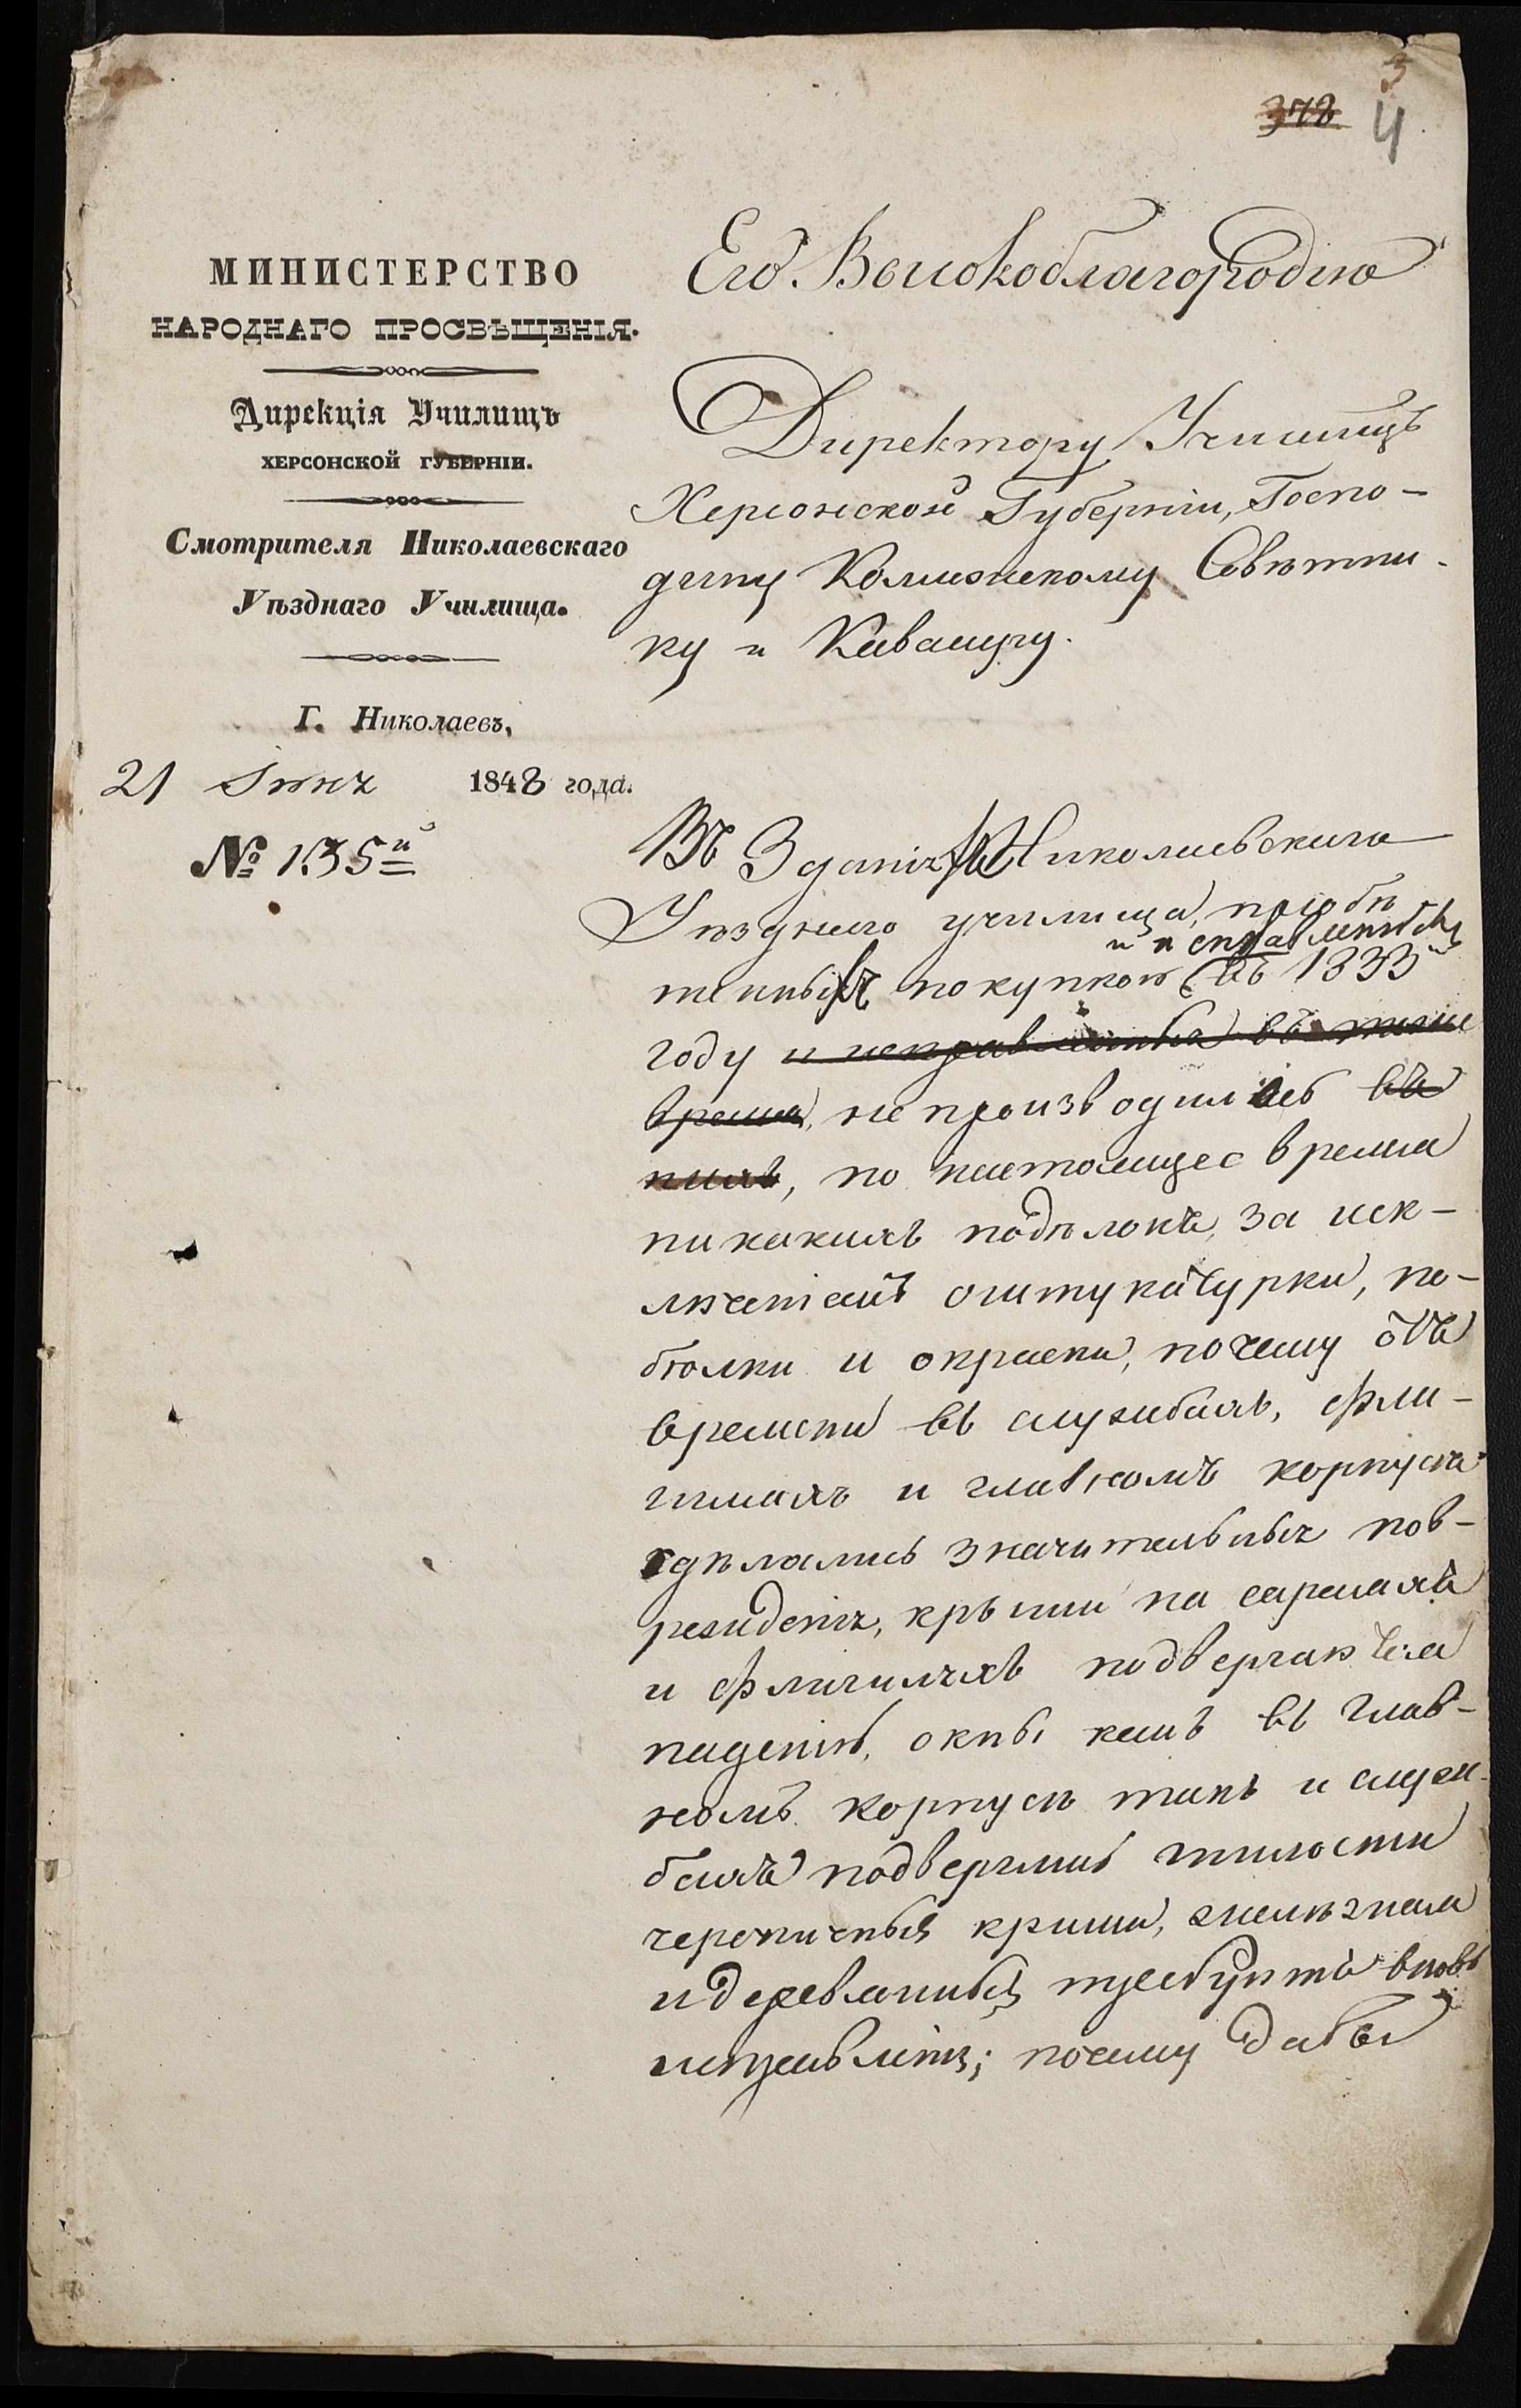 3
378
4
МИНИСТЕРСТВО
НАРОДНАГО ПРОСВѢЩЕНІЯ.
Дирекція Училищъ
ХЕРСОНСКОЙ ГУБЕРНІИ.
Смотрителя Николаевскаго
Уѣзднаго Училища.
Г. Николаевъ,
21 Іюня 1848 года.
№ 135й
Его Высокоблагородію
Директору Училищъ
Херсонской Губерніи, Госпо-
дину Коллежскому Совѣтни-
ку и Кавалеру.
Въ Зданіяхъ Николаевскаго
Уѣзднаго училища, пріобрѣ
и исправленныхъ
тенныхъ покупкою въ 1833м
году и исправленныхъ въ тоже
время, не производилось въ
нихъ, по настоящее время
никакихъ подѣлокъ, за иск-
люченіемъ оштукатурки, по-
бѣлки и окраски, почему отъ
времени въ службахъ, фли-
гиляхъ и главномъ корпусѣ
сдѣлались значительныя пов-
режденія, крыши на сараяхъ
и флигиляхъ подвергаются
паденію, окны какъ въ глав-
номъ корпусѣ такъ и служ-
бахъ подверглись гнилости
черепичныя крыши, желѣзная
и деревянныя требуютъ вновь
исправленія; почему дабы